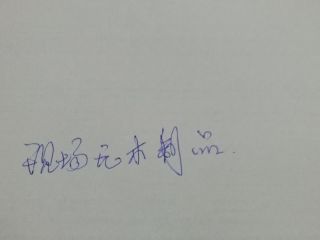 现场无木制品.